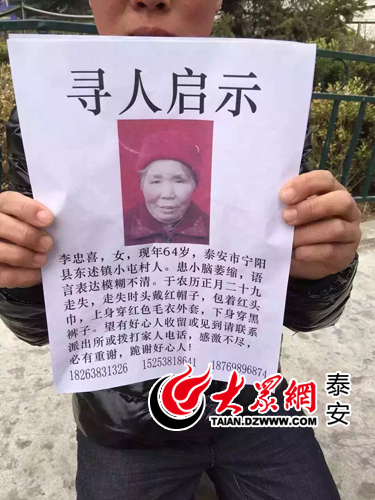 寻人启示
李忠喜，女，现年64岁，泰安市宁阳
县东述镇小屯村人。患小脑萎缩，语
言表达模糊不清。于农历正月二十九
走失，走失时头戴红帽子，包着红头
巾，上身穿红色毛衣外套，下身穿黑
裤子。望有好心人收留或见到请联系
派出所或拨打家人电话，感激不尽，
必有重谢，跪谢好心人！
18263831326 15253818641 18769896874
大眾網 泰安
TAIAN.DZWWW.COM